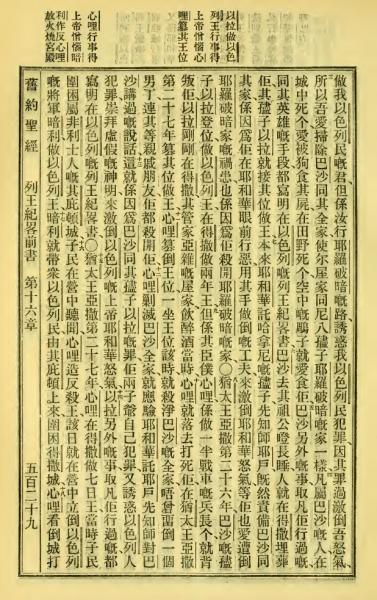 以拉做以色
列王行事得
上帝憎惱心
哩篡其王位
心哩行事得
上帝憎惱暗
利作反心哩
放火燒宮殿
做我以色列民嘅君但係汝行耶羅破暗嘅路誘惑我以色列民犯罪因其罪過激倒吾怒氣
所以吾愛掃除巴沙同其全家使尔屋家同尼八孻子耶羅破暗嘅家一樣凡屬巴沙嘅人在
城中死个愛被狗食其屍在田野死个空中嘅鷂子就愛食佢巴沙另外嘅事取凡佢行過嘅
同其英雄嘅手段都寫明在以色列嘅列王紀畧書巴沙去其祖公長睡人就在得撒埋葬
佢其孻子以拉就接其位做王本來耶和華託哈拿尼嘅孻子先知師耶戶既然責備巴沙同
其家係因爲佢在耶和華眼前行惡用其手做倒嘅工夫來激倒耶和華怒氣等佢也愛遭倒
耶羅破暗家嘅禍患也係因爲佢殺開耶羅破暗嘅家○猶太王亞撒第二十六年巴沙嘅孻
子以拉登位做以色列王在得撒做兩年王但係其臣僕心哩係做一半戰車嘅兵長个就背
叛佢以拉剛剛在得撒其管家亞雜嘅屋家飲醉酒當時心哩就落去打死佢在猶太王亞撒
第二十七年篡其位做王心哩篡倒王位一坐王位該時就殺淨巴沙嘅全家唔曾留倒一個
男丁連其等親戚朋友佢都殺開佢心哩剿滅巴沙全家就應驗耶和華託耶戶先知師對巴
沙講過嘅說話這就係因爲巴沙同其孻子以拉嘅罪佢兩子爺自己犯罪又誘惑以色列人
犯罪崇拜虛假嘅神明來激倒以色列嘅上帝耶和華怒氣以拉另外嘅事取凡佢行過嘅都
寫明在以色列嘅列王紀畧書○猶太王亞撒第二十七年心哩在得撒做七日王當時子民
圍困屬非利士人嘅其庇頓城子民在營中聽聞心哩造反殺王該日就在營中立倒以色列
嘅將軍暗利做以色列王暗利就帶衆以色列民由其庇頓上來圍困得撒城心哩看倒城打
舊約聖經 列王紀畧前書 第十六章 五百二十九